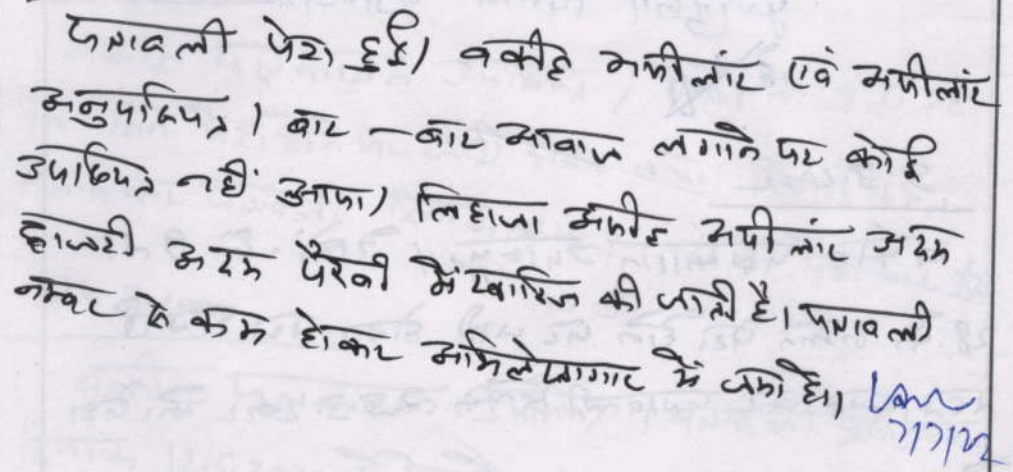 पत्रावली पेश हुई। वकील अपीलांट एवं अपीलांट
अनुपस्थित। बार - बार आवाज लगाने पर कोई
उपस्थित नहीं आया। लिहाजा अपील अपीलांट अदम
हाजरी अदम पैरवी में खारिज की जाती है। पत्रावली
नम्बर से कम होकर अभिलेखागार में जमा हो।
7/7/22